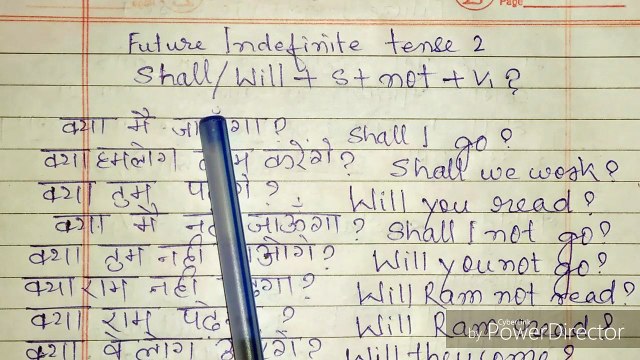 Page
Future Indefinite tense 2
Shall/Will + S + not + V₁ ?
क्या मै ? Shall I go?
क्या हमलोग करेंगे? Shall we work?
क्या तुम ? Will you read?
क्या मै जाऊंगा? Shall I not go?
क्या तुम नही ? Will you not go?
क्या राम नही ? Will Ram not read?
क्या राम ? Will Ram read?
क्या वे लोग ? Will they come?
by PowerDirector